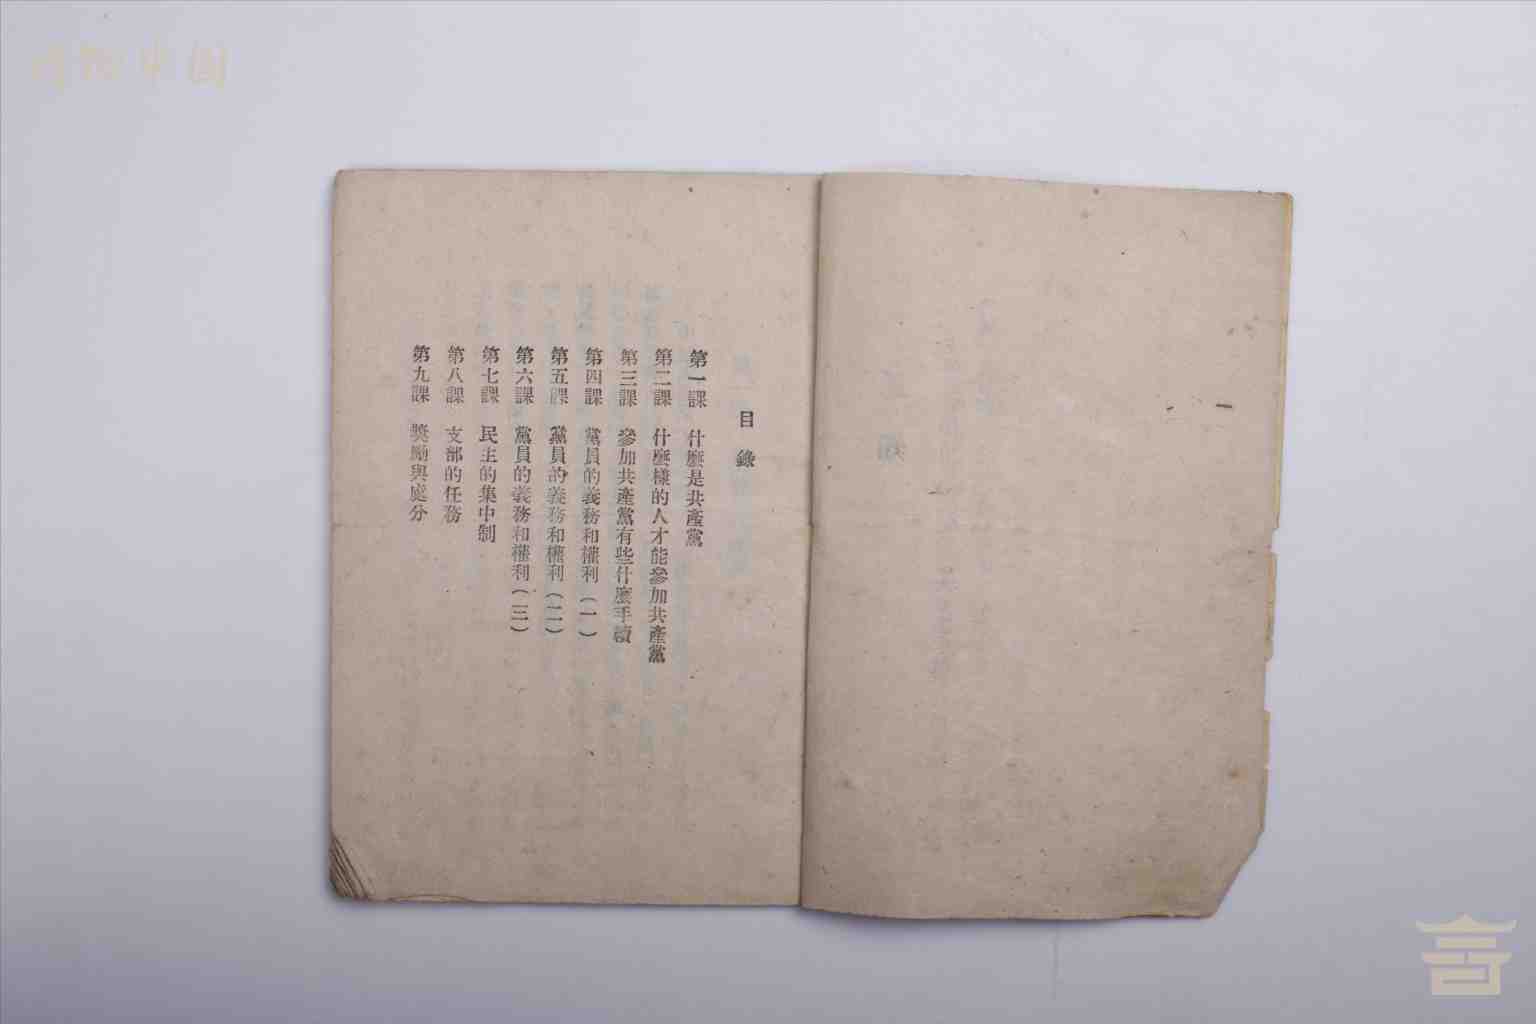 目錄
第一課 什麼是共產黨
第二課 什麼樣的人才能參加共產黨
第三課 參加共產黨有些什麼手續
第四課 黨員的義務和權利(一)
第五課 黨員的義務和權利(二)
第六課 黨員的義務和權利(三)
第七課 民主的集中制
第八課 支部的任務
第九課 獎勵與處分